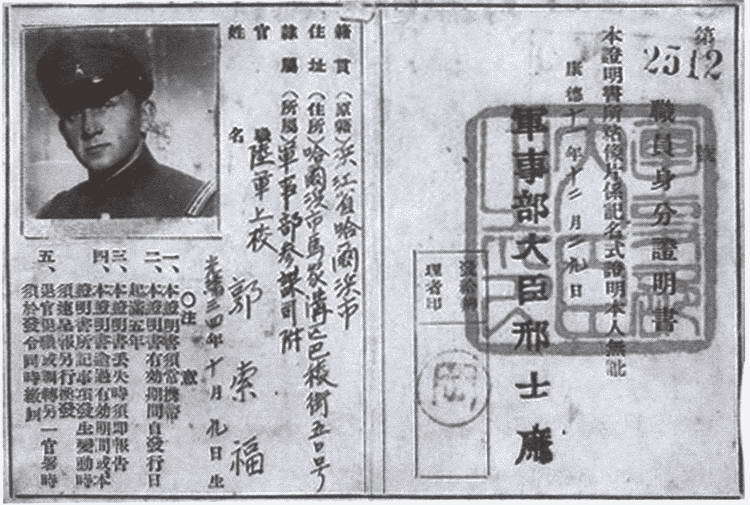 第 2512 號
職員身分證明書
本證明書所貼像片係記名式證明本人無訛
康德十一年十二月一九日
軍事部大臣邢士廉
理者印
籍貫（原籍）濱江省哈爾濱市
住址（住所）哈爾濱市馬家溝巴陵街五〇号
隸屬（所屬）軍事部參謀司附
官職 陸軍上校
姓名 郭索福
光緒三四年十月九日生
〇注意
一、本證明書須常携帶
二、本證明書有効期間自發行日
起滿五年
三、本證明書丢失時須即報告
四、本證明書逾過有効期間或本
證明書所記事項發生變動時
須速呈報另行換發
五、退官退職或調轉另一官署時
須於發令同時繳回